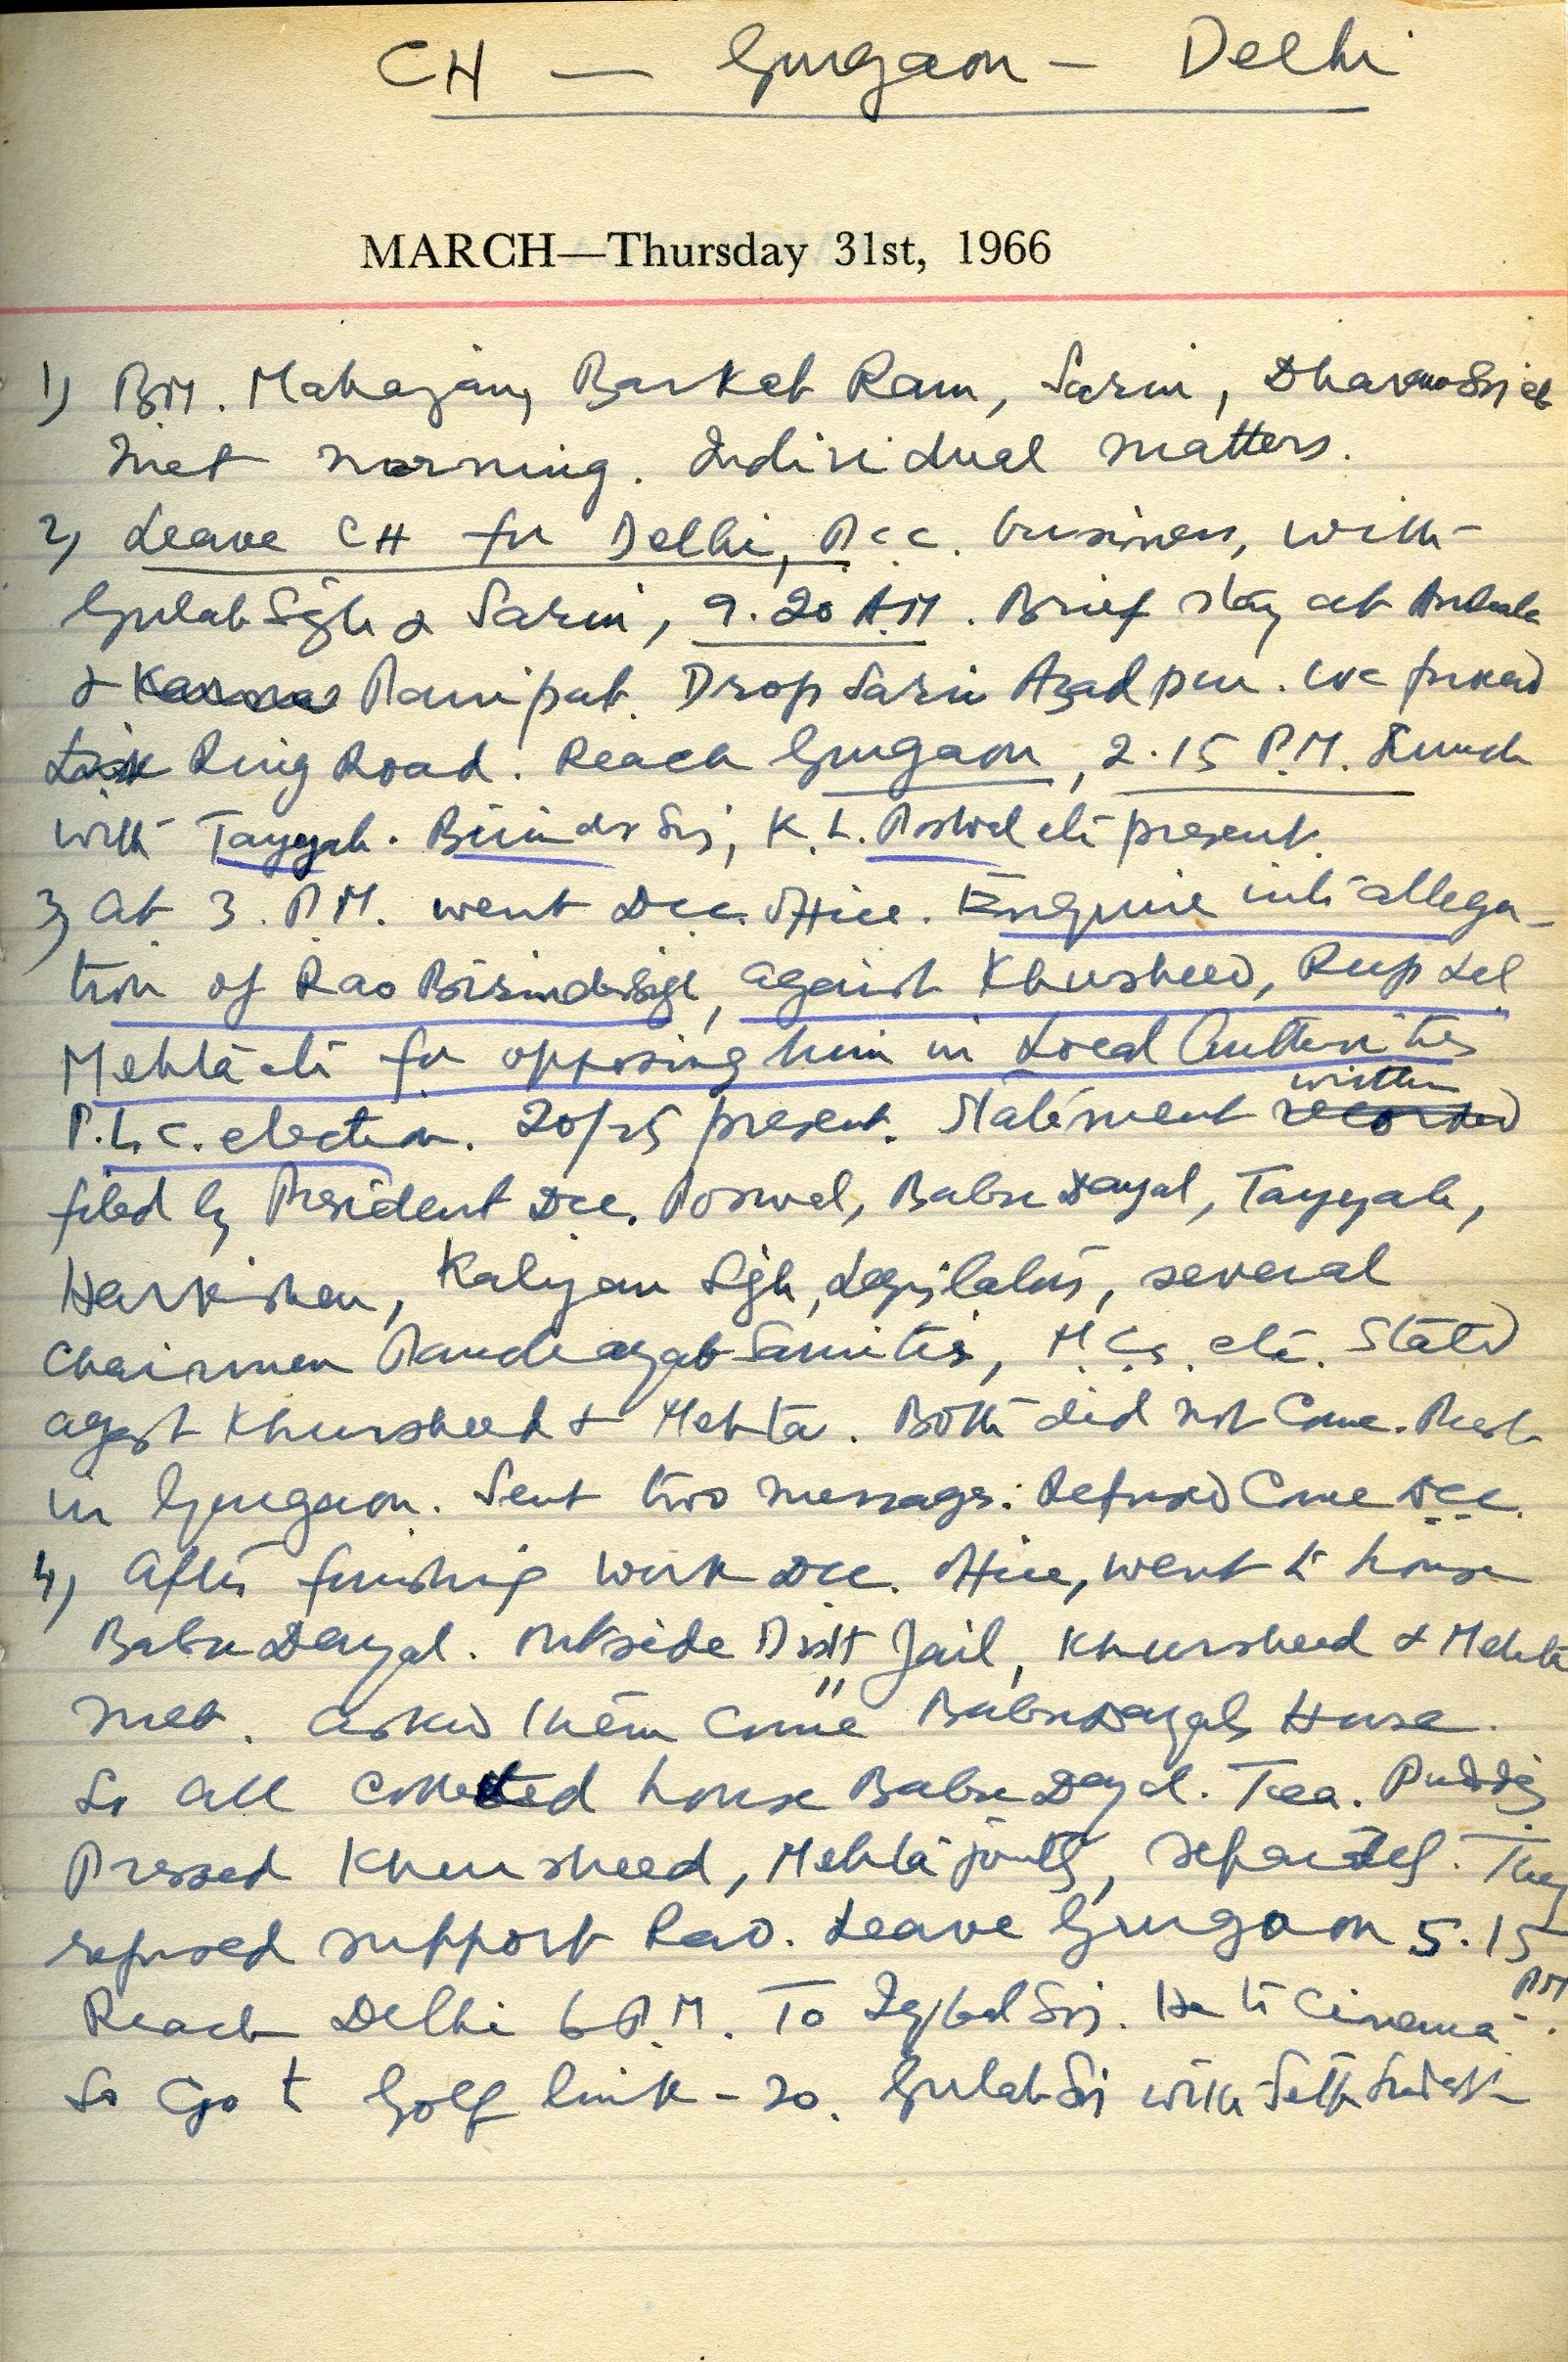 CH — Gurgaon — Delhi
MARCH—Thursday 31st, 1966
1) BM. Mahajan, Barket Ram, Sarin, Dharam
met morning. Individual matters.
2) Leave CH for Delhi, P.c.c. business, with
Gulab Sgh & Sarin, 9.20 A.M. Brief stay at Ambala
& Panipat. Drop Sarin Azadpur. We forward
Ring Road. Reach Gurgaon, 2.15 P.M. Lunch
with Tayyab. K. L. Poswal etc present.
3) At 3. P.M. went Dcc. Office. Enquire into allega-
tion of Rao Birinder Sgh, against Khursheed, Rup Lal
Mehta etc for opposing him in Local Authorities
P.L.C. election. 20/25 present. Statement written
filed by President Dcc. Poswal, Babu Dayal, Tayyab,
Harkishan, Kaliyan Sgh, Legislators, several
Chairmen Panchayat Samitis, M.Cs. etc. Stated
agst Khursheed & Mehta. Both did not Come. Prest
in Gurgaon. Sent two messages. Refused Come Dcc.
4) After finishing work Dcc. Office, went to house
Babu Dayal. Outside Distt Jail, Khursheed & Mehta
met. Asked them Come Babu Dayals House.
So all collected house Babu Dayal. Tea.
Pressed Khursheed, Mehta jointly, separately. They
refused support Rao. Leave Gurgaon 5.15 PM
Reach Delhi 6 P.M. To Iqbal Sgj. He to Cinema.
So Go to Golf link - 20. Gulab Sgj with Seth